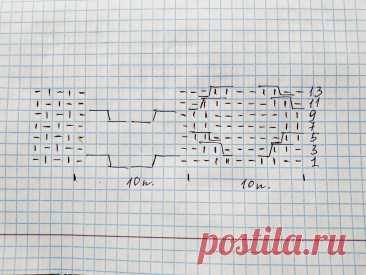 13
11
9
7
5
3
1
10п. 10п.
postila.ru